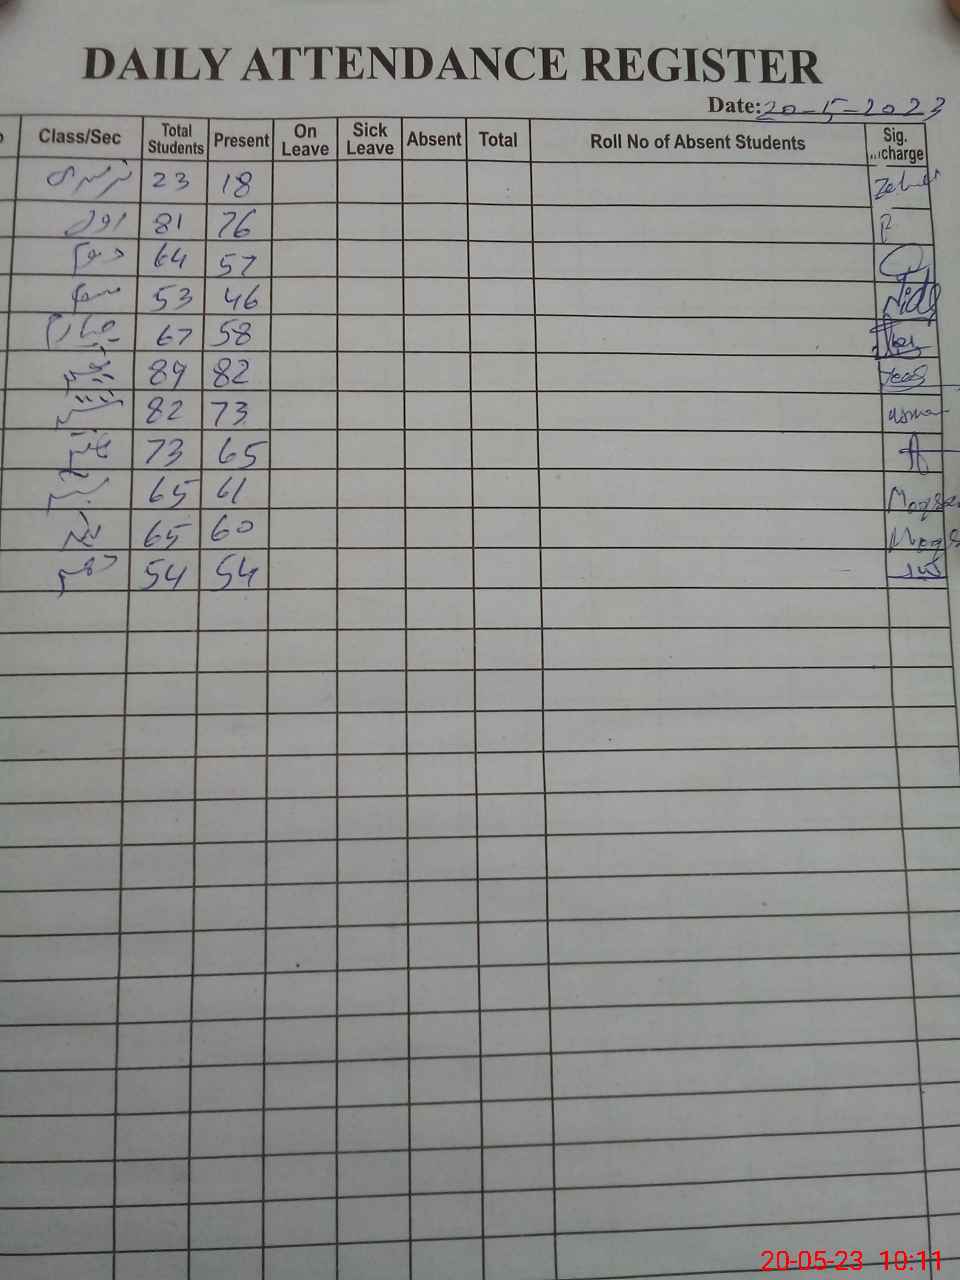 DAILY ATTENDANCE REGISTER
Date: 20-5-2023
Class/Sec Total Students Present On Leave Sick Leave Absent Total Roll No of Absent Students Sig. Incharge
نرسری 23 18
اول 81 76
دوم 64 57
سوم 53 46
چہارم 67 58
پنجم 89 82
ششم 82 73 asma
ہفتم 73 65
ہشتم 65 61
نہم 65 60
دہم 54 54
20-05-23 10:11